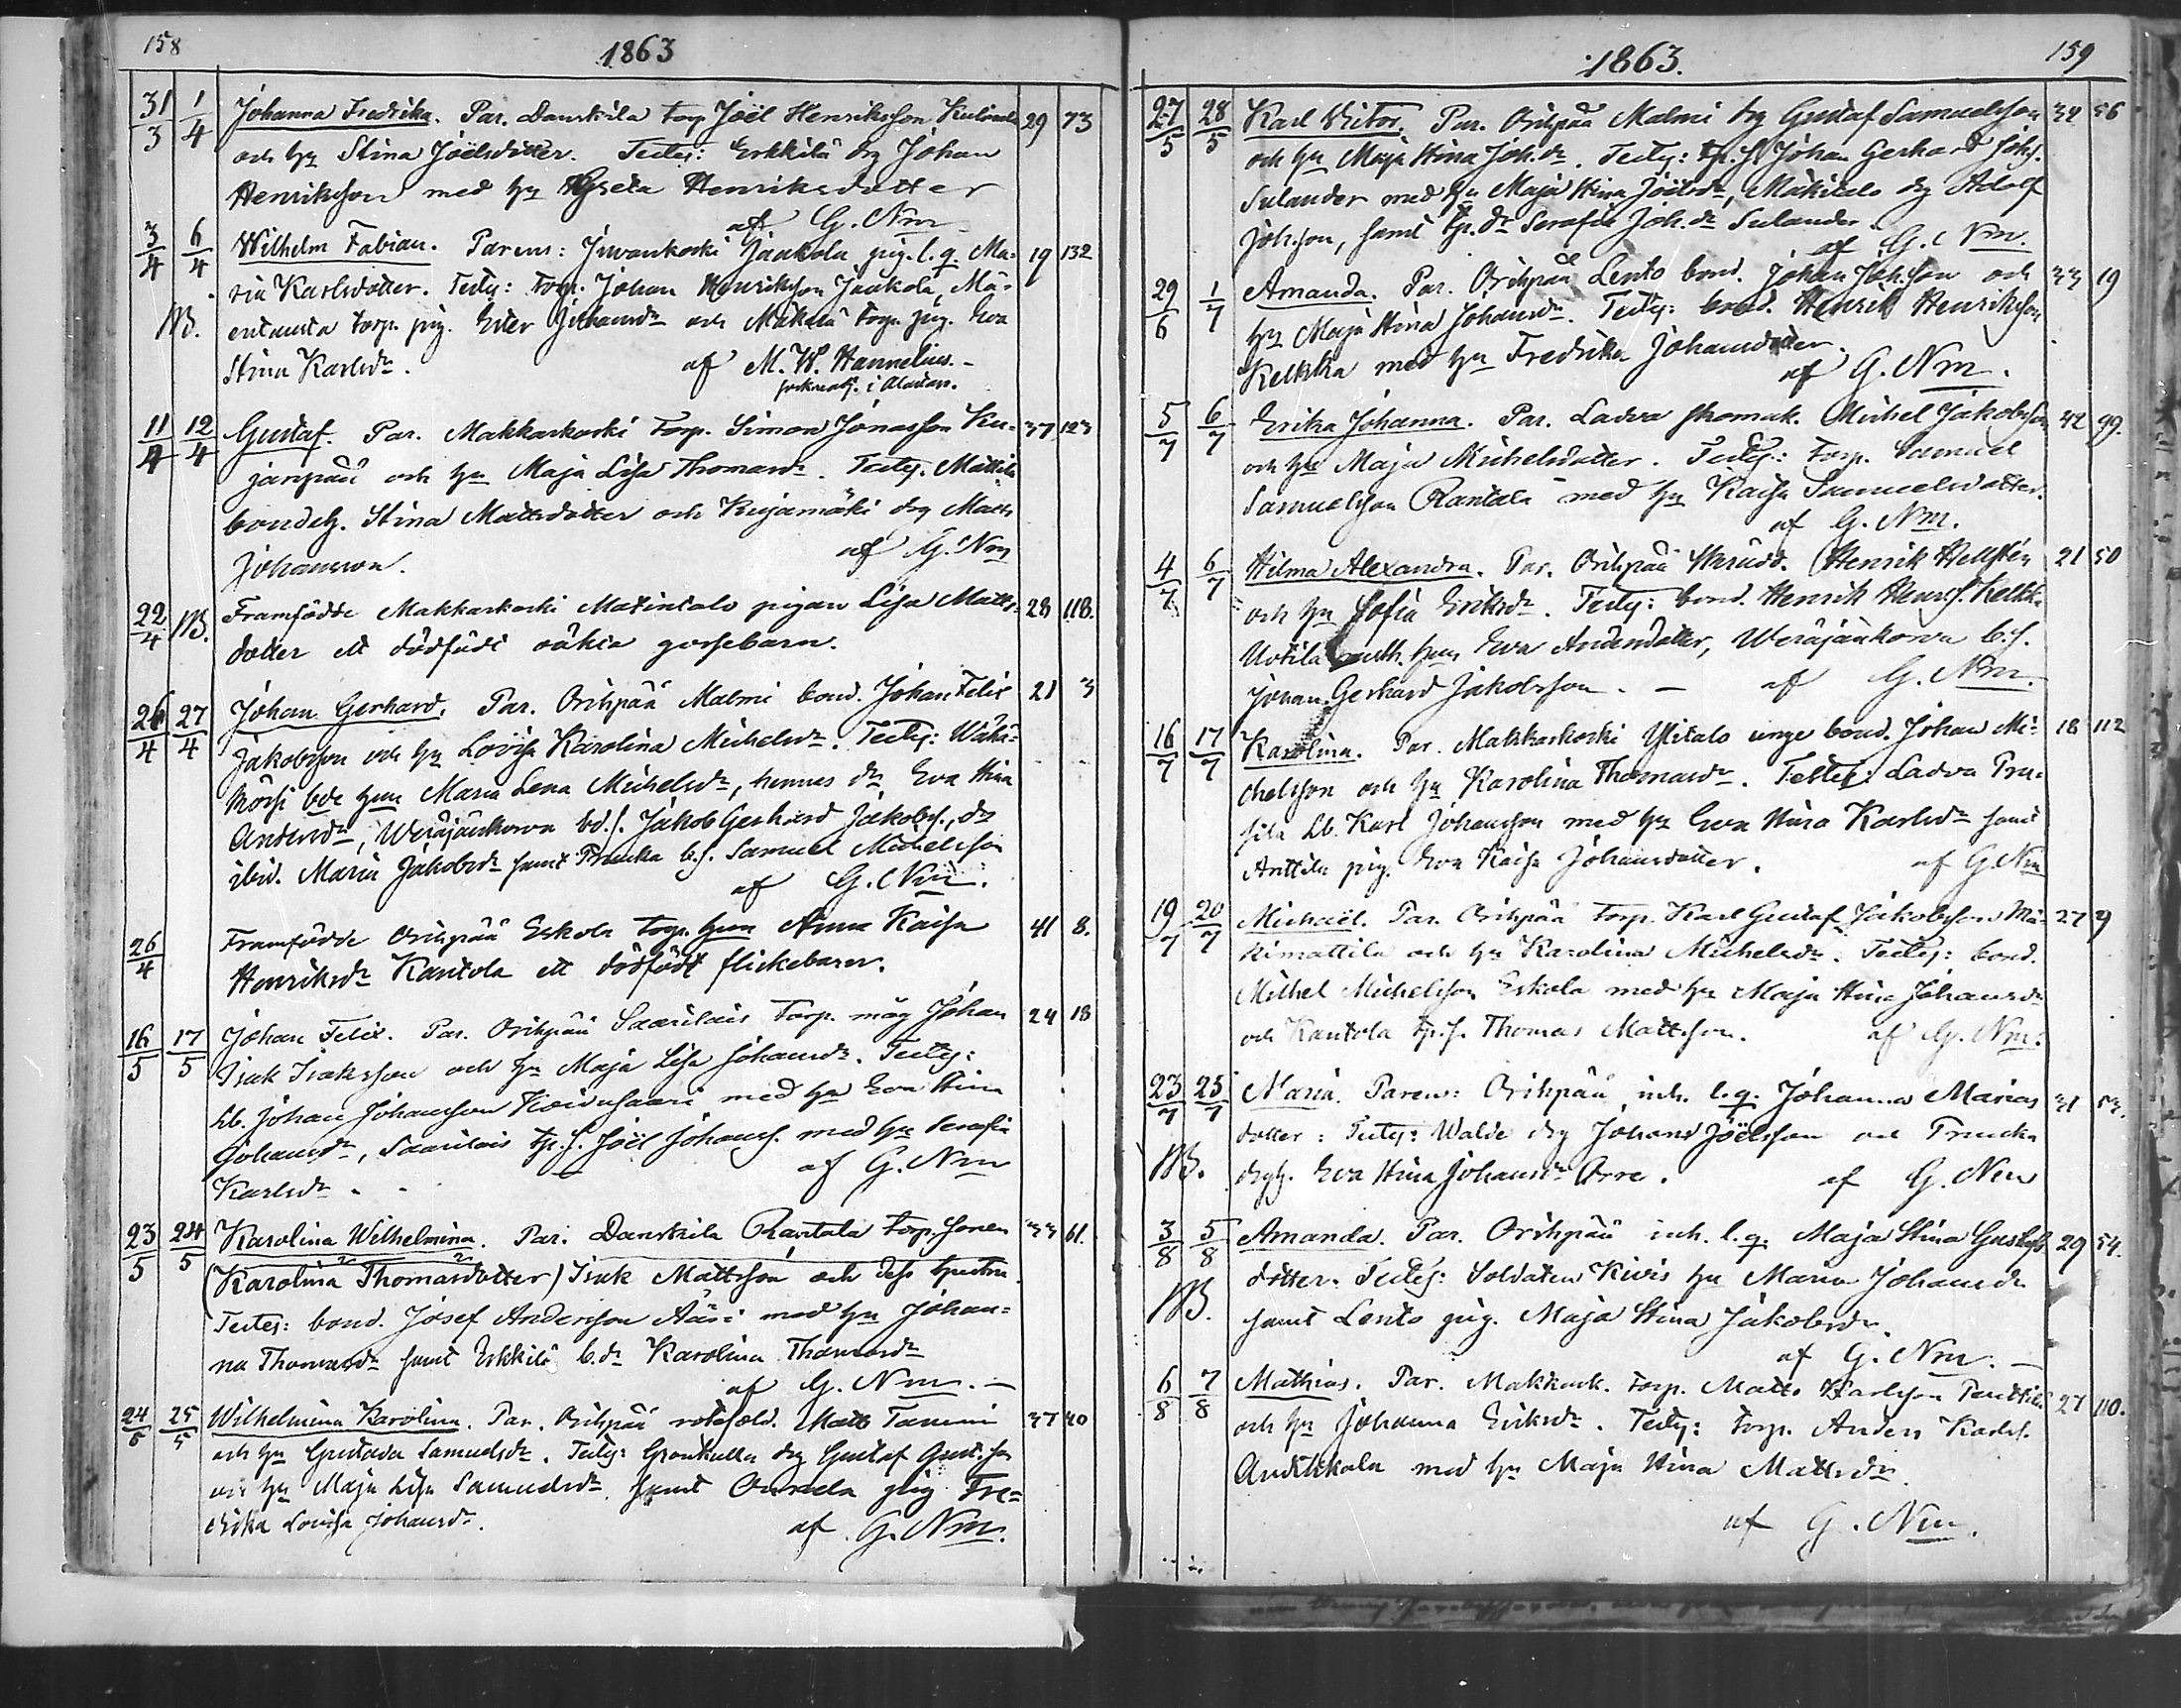 158
1863
31/3 1/4 Johanna Fredrika. Par. Danskila torp Joël Henriksson 29 73
och hu Stina Joëlsdotter. Testes: Erkkilä drg Johan
Henriksson med hu Greta Henriksdotter
af G. Nm
3/4 6/4 Wilhelm Fabian. Parens: Jaakola pig. l. q. Ma- 19 132
ria Karlsdotter. Testes: torp. Johan Henriksson Jaakola, Mä-
NB. entausta torp. pig. Ester Johansdr och Mäkelä torp. pig. Eva
Stina Karlsdr. af M. W. Hannelius.-
i Alastaro.
11/4 12/4 Gustaf. Par. Makkarkoski torp. Simon Jonasson Ku- 37 123
janpää och hu Maja Lisa Thomasdr. Testes. Mattila
bondeh. Stina Mattsdotter och Kujamäki drg Matts
Johansson. af G. Nm
22/4 NB. Framfödde Makkarkoski Matintalo pigan Lisa Matts- 28 118.
dotter ett dödfödt oäkta gossebarn.
26/4 27/4 Johan Gerhard. Par. Orihpää Malmi bond. Johan Felix 21 3
Jakobsson och hu Lovisa Karolina Michelsdr. Testes: Wähä-
Mörsi bde Maria Lena Michelsdr, hennes dr Eva Stina
Andersdr, Weräjänkorva bd.s. Jakob Gerhard Jakobs., dr
ibid. Maria Jakobsdr samt Prunka b.s. Samuel Michelsson
af G. Nm.
26/4 Framfödde Orihpää Eskola torp. hun Anna Kaisa 41 8.
Henriksdr Kantola ett dödfödt flickebarn.
16/5 17/5 Johan Felix. Par. Orihpää Saarilais torp. måg Johan 24 18
Isak Isaksson och hu Maja Lisa Johansdr. Testes:
Lb. Johan Johansson Koivusaari med hu Eva Stina
Johansdr, Saarilais tp.s. Joël Johanss. med hu Serafia
Karlsdr. af G. Nm
23/5 24/5 Karolina Wilhelmina. Par. Danskila Rantala torp. sonen 33 61.
(Karolina Thomasdotter) Isak Mattsson och dess hustru
Testes: bond. Josef Andersson Ääri med hu Johan-
na Thomasdr samt Erkkilä b.dr Karolina Thomasdr
af G. Nm.-
24/5 25/5 Wilhelmina Karolina. Par. Orihpää rotesold. Matts Tammi 37 40
och hu Gustava Samuelsdr. Testes: drg Gustaf Gust.son
och hu Maja Lisa Samuelsdr samt Onnela pig Fre-
drika Lovisa Johansdr. af G. Nm.
159
1863.
27/5 28/5 Karl Victor. Par. Orihpää Malmi drg Gustaf Samuelsson 32 56
och hu Maja Stina Joh.dr. Testes: tp.s. Johan Gerhard Johs.
Sulander med hu Maja Stina Joëlsdr, Mäkitalo drg Adolf
Joh.son, samt tp.dr Serafia Joh.dr Sulander.
af G. Nm.
29/6 1/7 Amanda. Par. Orihpää Lento bond. Johan Joh.son och 33 19
hu Maja Stina Johansdr. Testes: bond. Henrik Henriksson
Kelkka med hu Fredrika Johansdotter.
af G. Nm.
5/7 6/7 Erika Johanna. Par. Ladva skomak. Michel Jakobsson 42 99.
och hu Maja Michelsdotter. Testes: torp. Samuel
Samuelsson Rantala med hu Kaisa Samuelsdotter.
af G. Nm.
4/7 6/7 Hilma Alexandra. Par. Orihpää skrädd. Henrik Hellstén 21 50
och hu Sofia Eriksdr. Testes: bond. Henrik Henrs. Kelkk.
Uotila hun Eva Andersdotter, Weräjänkorva b.s.
Johan Gerhard Jakobsson. - af G. Nm.
16/7 17/7 Karolina. Par. Makkarkoski Ylitalo unge bond. Johan Mi- 18 112
chelsson och hu Karolina Thomasdr. Testes: Ladva
Lb. Karl Johansson med hu Eva Stina Karlsdr samt
Anttila pig. Eva Kaisa Johansdotter. af G. Nm
19/7 20/7 Michaël. Par. Orihpää torp. Karl Gustaf Jakobsson Mä- 27 9
kimattila och hu Karolina Michelsdr. Testes: bond.
Michel Michelsson Eskola med hu Maja Stina Johansdr
och Kantola tp.s. Thomas Mattsson. af G. Nm.
23/7 25/7 Maria. Parens: Orihpää inh. l.q. Johanna Marias 31 53.
dotter: Testes: Walde drg Johan Joëlsson och Prunka
NB. drgh. Eva Stina Johansdr Orre. af G. Nm
3/8 5/8 Amanda. Par. Orihpää inh. l.q. Maja Stina Gustafs 29 54.
dotter. Testes: Soldaten Kivis hu Maria Johansdr
NB. samt Lento pig. Maja Stina Jakobsdr.
af G. Nm.-
6/8 7/8 Mathias. Par. Makkark. torp. Matts Karlsson 27 110.
och hu Johanna Eriksdr. Testes: torp. Anders Karls.
med hu Maja Stina Mattsdr.
af G. Nm.